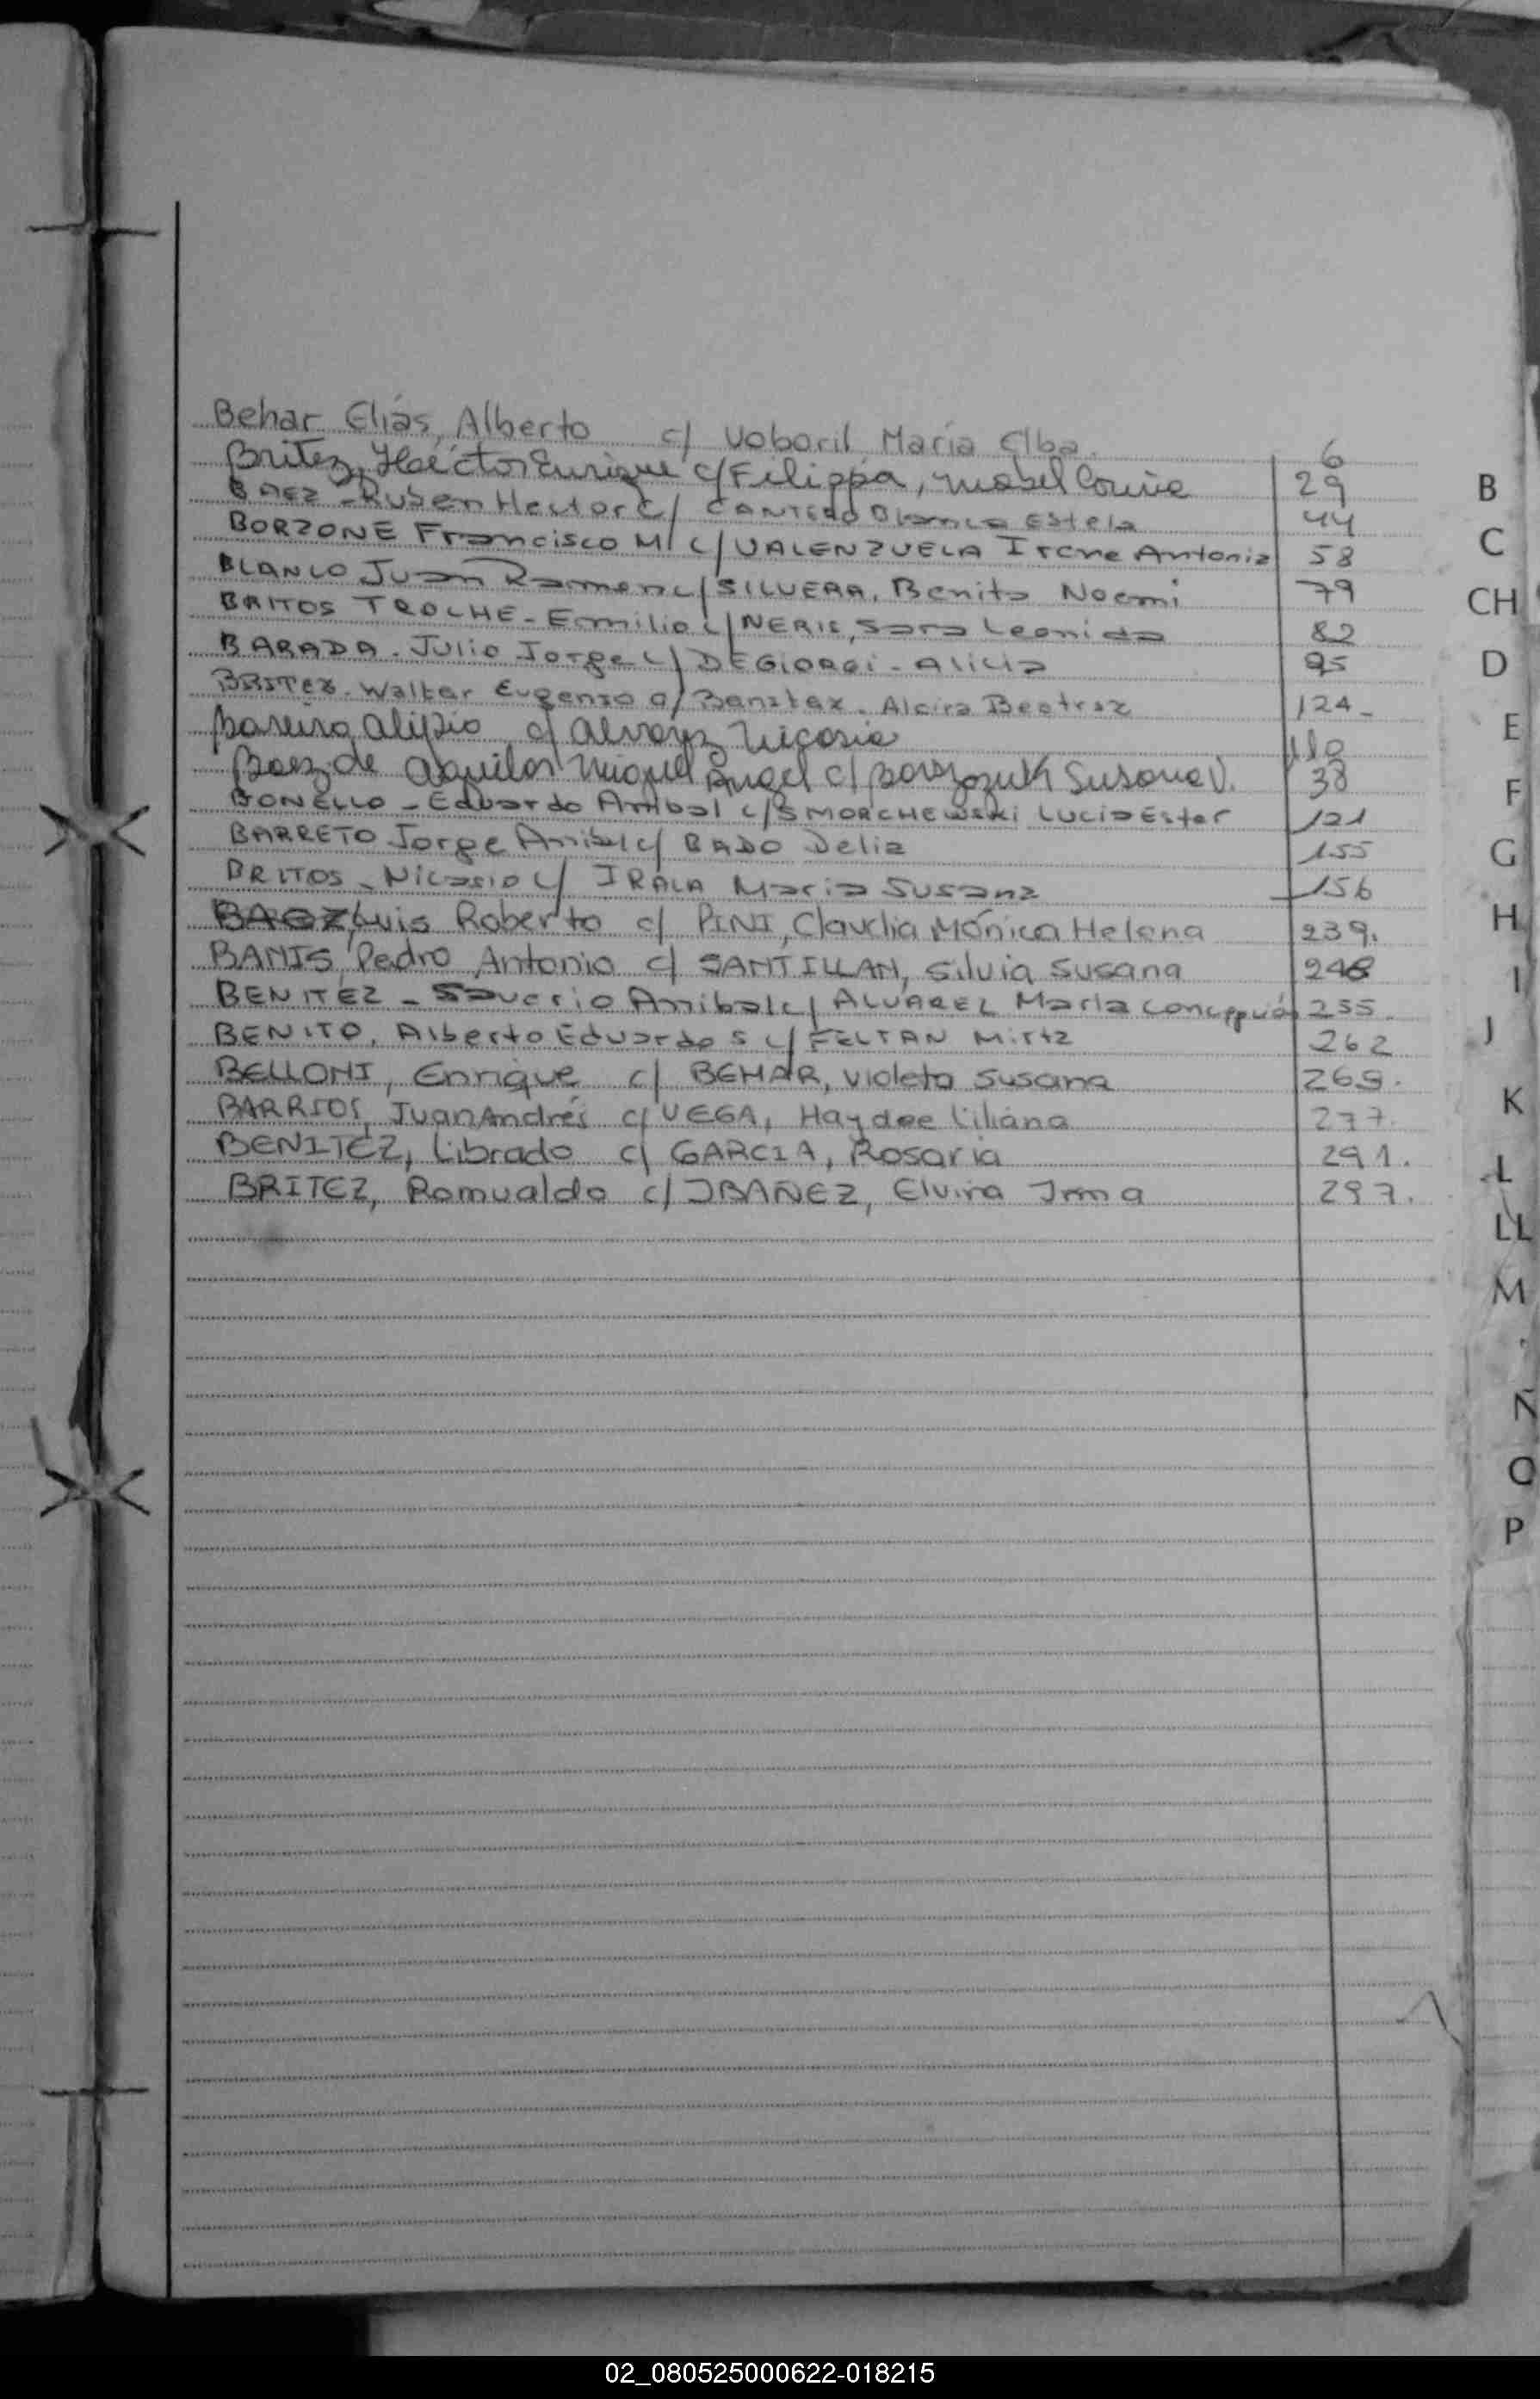 Behar Elías, Alberto c/ Voboril María Elba. 6
Britez, Héctor Enrique c/ Filippa, Mabel 29
BAEZ - Ruben Hector c/ CANTERO Blanca Estela 44
BORZONE Francisco M c/ VALENZUELA Irene Antonia 58
BLANCO Juan Ramon c/ SILVERA, Benita Noemi 79
BRITOS TROCHE - Emilio c/ NERIS, Sara Leonida 82
BARADA - Julio Jorge c/ DEGIORGI - Alicia 95
BRITEZ - Walter Eugenio c/ Benitez - Alcira Beatriz 124
Bareiro Alipio c/ Alvarez Nicasia 110
Baez de Aguilar Miguel Angel c/ Susana V. 38
BONELLO - Eduardo Anibal c/ SMORCHEWSKI Lucia Ester 121
BARRETO Jorge Anibal c/ BADO Delia 155
BRITOS - Nicasio c/ IRALA Maria Susana 156
BAEZ, Luis Roberto c/ PINI, Claudia Mónica Helena 239.
BANIS, Pedro Antonio c/ SANTILLAN, Silvia Susana 248
BENITEZ - Saverio Anibal c/ ALVAREZ Maria Concepción 255.
BENITO, Alberto Eduardo S c/ FELTAN Mirta 262
BELLONI, Enrique c/ BEHAR, Violeta Susana 269.
BARRIOS, Juan Andrés c/ VEGA, Haydee Liliana 277.
BENITEZ, Librado c/ GARCIA, Rosaria 291.
BRITEZ, Romualdo c/ IBAÑEZ, Elvira Irma 297.
B
C
CH
D
E
F
G
H
I
J
K
L
LL
M
Ñ
O
P
02_080525000622-018215